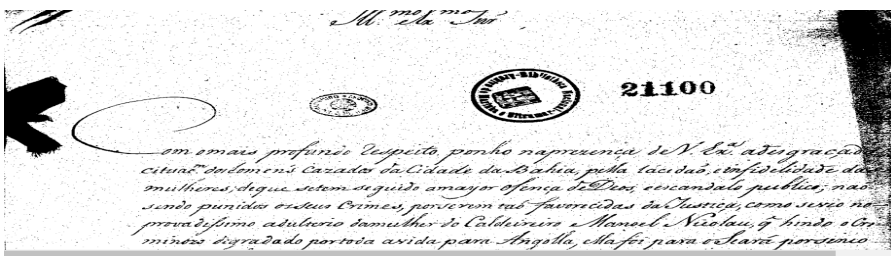 Ill.mo e Ex.mo Snr
21100
Com o mais profundo Respeito, ponho na prezença de N. Ex.ª a desgraçad
cituaç.m dos homens Cazados da Cidade da Bahia, pella lacidaõ, e infidelidade das
mulheres; de que se tem seguido a mayor ofença de Deos, e escandalo publico; naõ
sendo punidos os seus Crimes, por serem taõ favorecidas da Justiça, como se vio no
provadissimo adulterio da mulher do Caldeireiro Manoel Nicolau, q̃ hindo o Cri
minozo digradado por toda a vida para Angolla, ella foi para o Seará por sinco